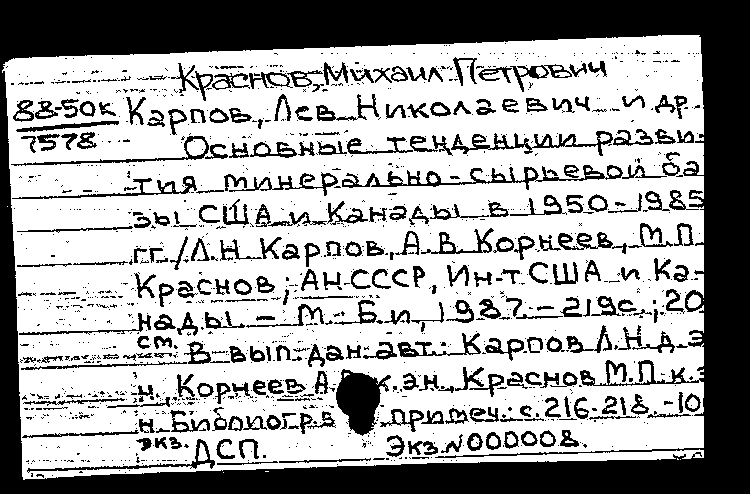 Краснов, Михаил Петрович
88-50к Карпов, Лев Николаевич и др.
7578 Основные тенденции разви-
тия минерально-сырьевой ба
зы США и Канады в 1950-1985
гг./Л.Н. Карпов, А.В. Корнеев, М.П.
Краснов; АН СССР, Ин-т США и Ка-
нады. - М.: Б.и., 1987. - 219с.; 20
см.
В вып. дан. авт.: Карпов Л.Н. д.э
н., Корнеев А. к.эн., Краснов М.П. к.э
н. Библиогр. в примеч.: с. 216-218. -10
экз.
ДСП. Экз. N000008.